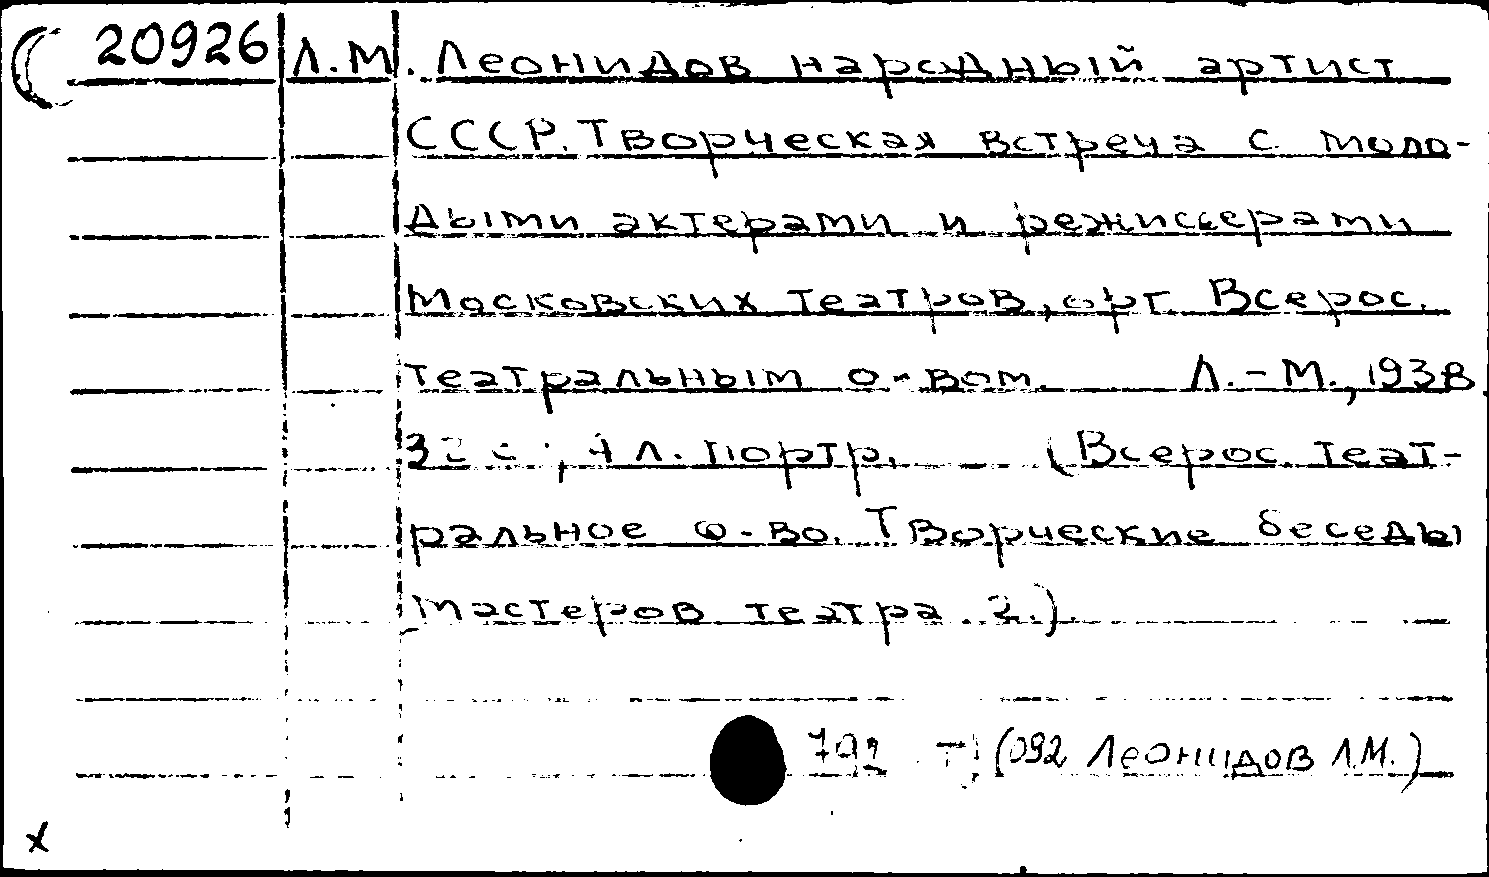 20926 Л.М. Леонидов народный артист
СССР. Творческая встреча с моло-
дыми актерами и режиссерами
московских театров, орг. Всерос.
театральным о-вом. Л.-М., 1938.
32 с., 1 л. портр. (Всерос. теат-
ральное о-во. Творческие беседы
мастеров театра. 2.).
792 (092 Леонидов Л.М.)
x